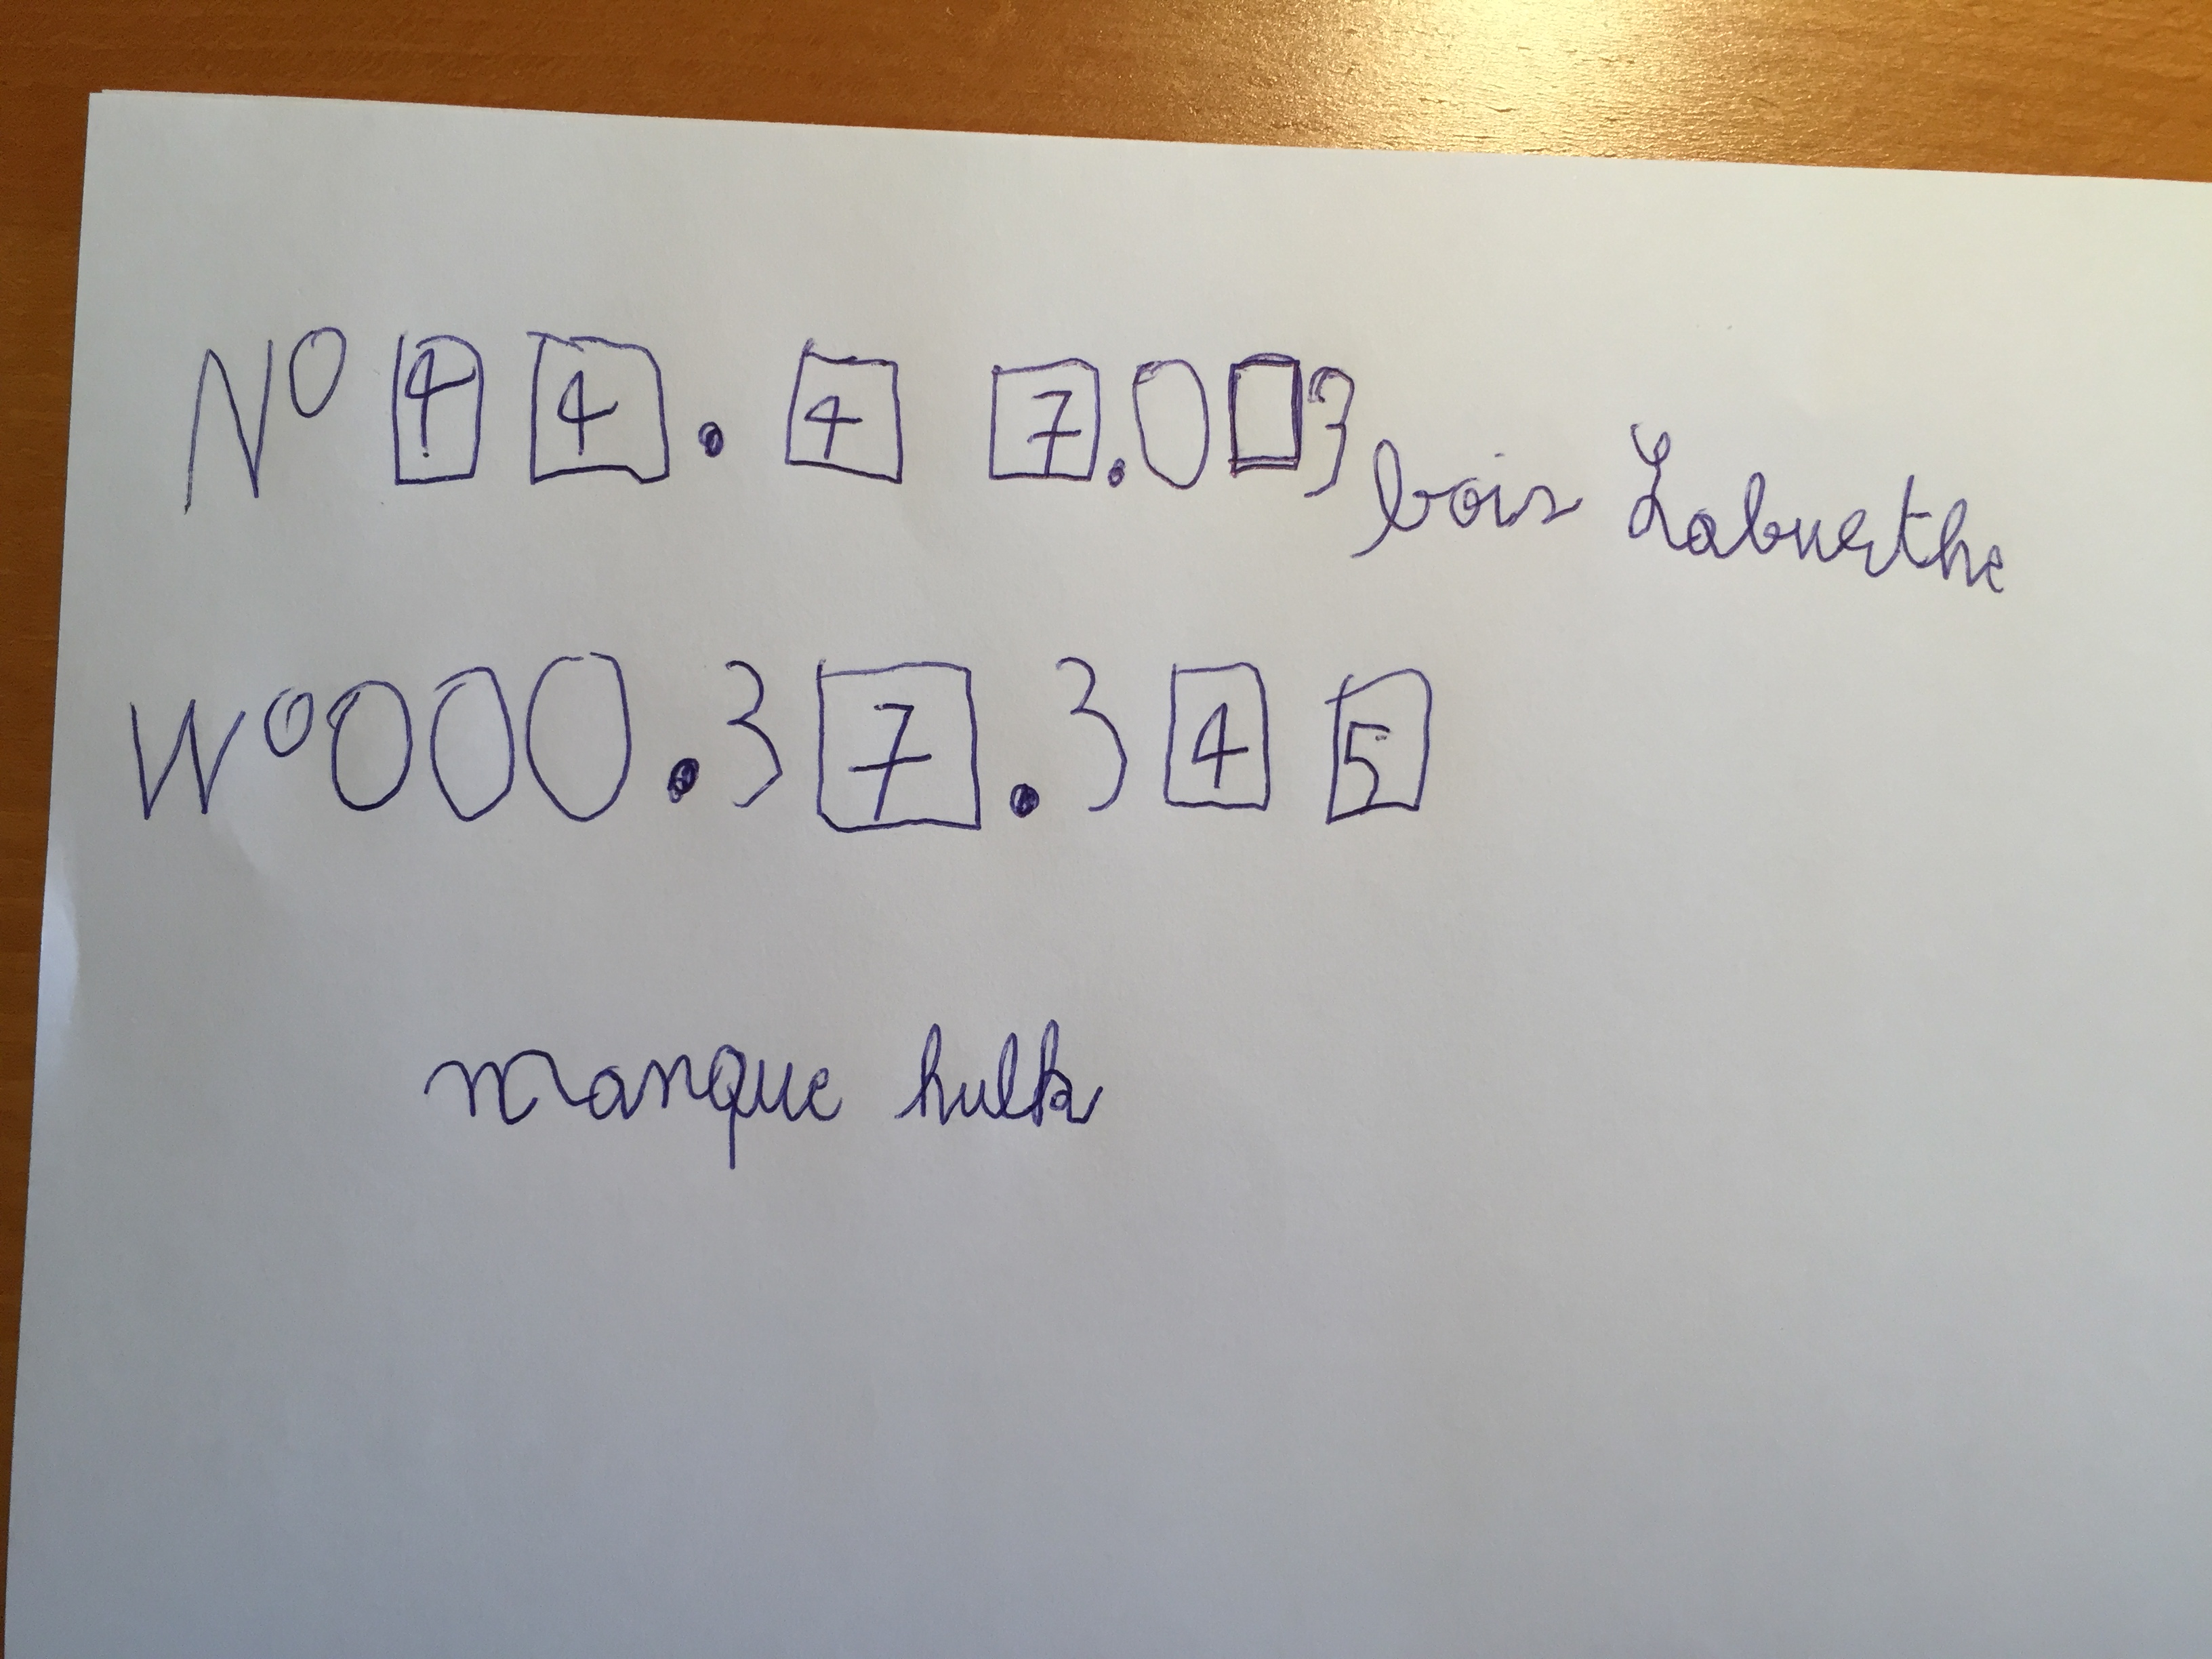 N° 4 4 . 4 7 . 0 □ 3 bois Laburthe
W° 0 0 0 . 3 7 . 3 4 5
manque hulk